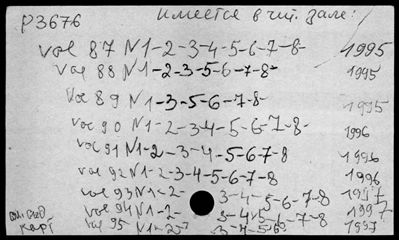 р3676 имеется в чит. зале:
vol 87 N1-2-3-4-5-6-7-8- 1995
vol 88 N1-2-3-5-6-7-8- 1995
vol 89 N1-3-5-6-7-8- 1995
vol 90 N1-2-3-4-5-6-7-8- 1996
vol 91 N1-2-3-4-5-6-7-8 1996
vol 92 N1-2-3-4-5-6-7-8 1996
vol 93 N1-2- 3-4-5-6-7-8 1997
vol 94 N1-2- 3-4-5-6-7-8 1997
vol 95 N1-2- 3-4-5-6 1997
карт